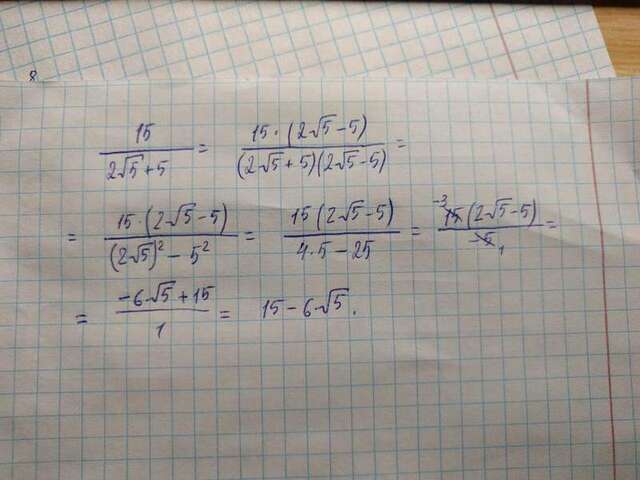 8
15/(2√5+5) = 15·(2√5-5)/((2√5+5)(2√5-5)) =
= 15·(2√5-5)/((2√5)²-5²) = 15(2√5-5)/(4·5-25) = -3 15(2√5-5)/(-5) 1 =
= (-6√5+15)/1 = 15-6√5.